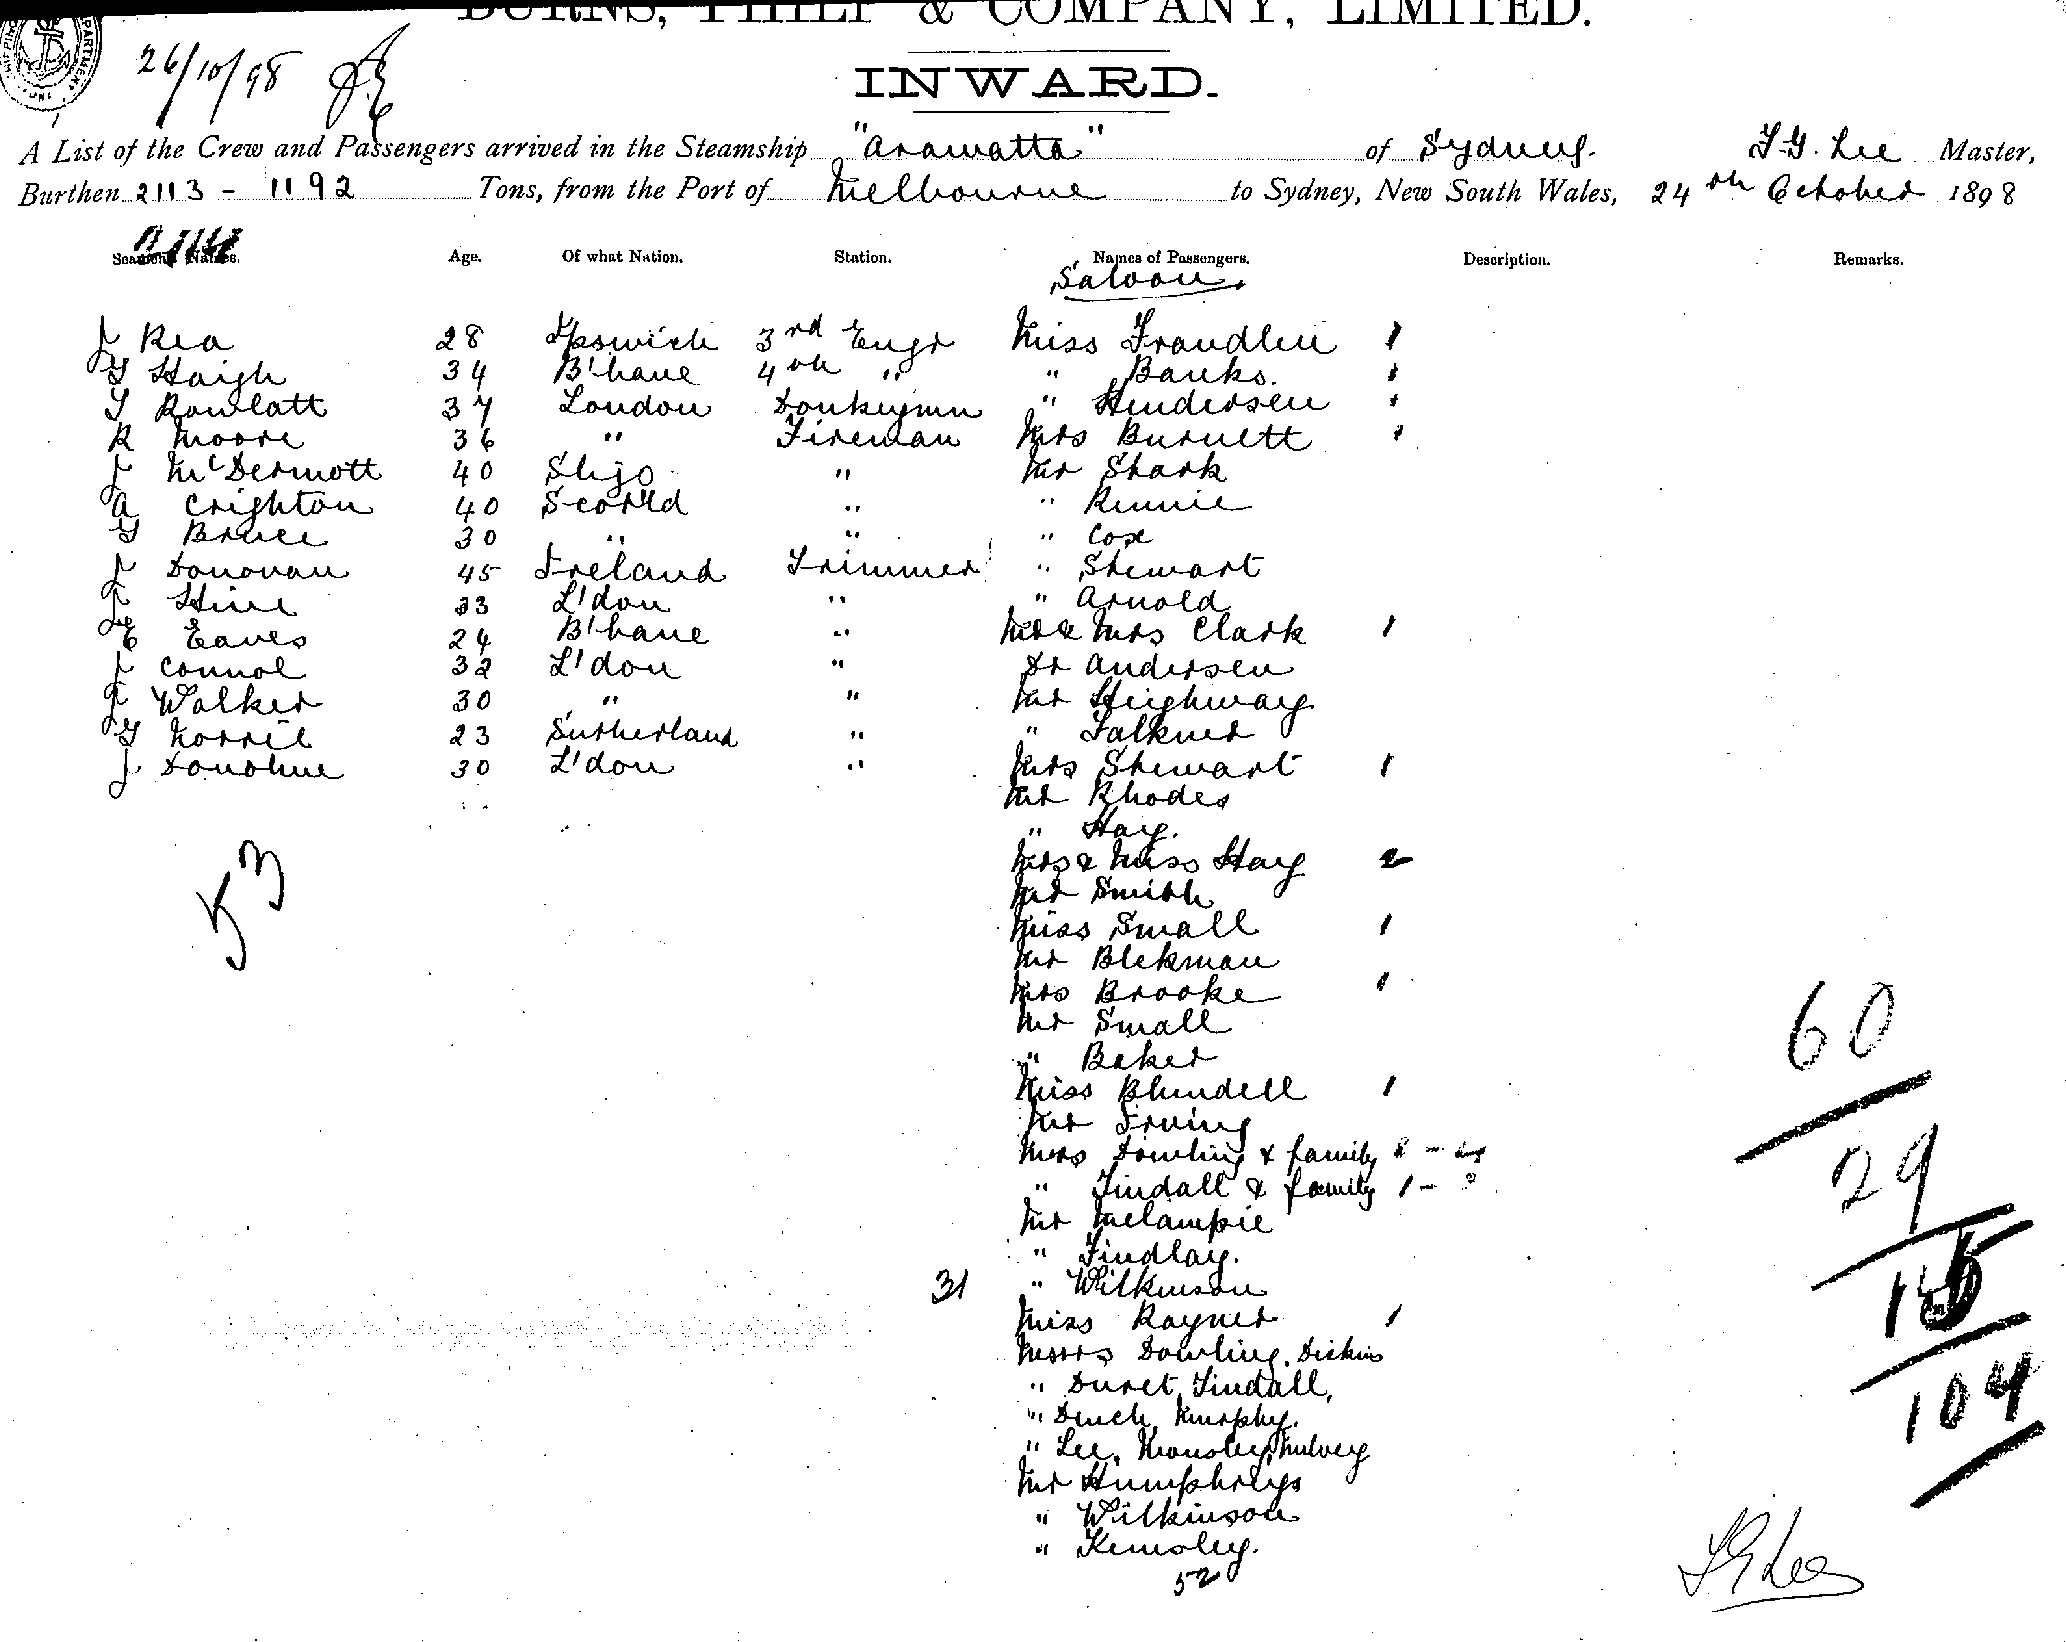 BURNS, PHILP & COMPANY, LIMITED.
26/10/98
INWARD.
A List of the Crew and Passengers arrived in the Steamship "Aramatta" of Sydney. T. G. Lee Master,
Burthen 2113 - 1192 Tons, from the Port of Melbourne to Sydney, New South Wales, 24th October 1898
Names. Age. Of what Nation. Station. Names of Passengers. Description. Remarks.
Saloon.
J Rea 28 Ipswich 3rd Engr Miss Frandlen 1
G Haigh 34 B'hane 4th " " Banks. 1
T Rowlatt 37 London Donkeymn " Hendersen 1
R Moore 36 " Fireman Mrs Burnett 1
J McDermott 40 Sligo " Mr Shark
A Crighton 40 Scot'ld " " Rennie
G Bruce 30 " " " Cox
J Donovan 45 Ireland Trimmer " Stewart
J Hine 33 L'don " " Arnold
E Eaves 24 B'hane " Mr & Mrs Clark 1
J Connol 32 L'don " Dr Andersen
J Walker 30 " " Mr Heighway
G Norril 23 Sutherland " " Falkner
J Donohue 30 L'don " Mrs Stewart 1
Mr Rhodes
" Hay.
Mrs & Miss Hay 2
53
Mr Smith
Miss Small 1
Mr Blekman
Mrs Brooke 1
Mr Small
60
" Baker
Miss Blundell 1
Mr Irving
Mrs Dowling & family
29
" Tindall & family 1 -
Mr Melampie
" Findlay.
31 " Wilkinson
Miss Rayner 1
Messrs Dowling, Dickins
" Duret, Tindall,
104
" Dench, Murphy.
" Lee, Mulvey
Mr Humphreys
" Wilkinson
" Kemsley.
52
T G Lee